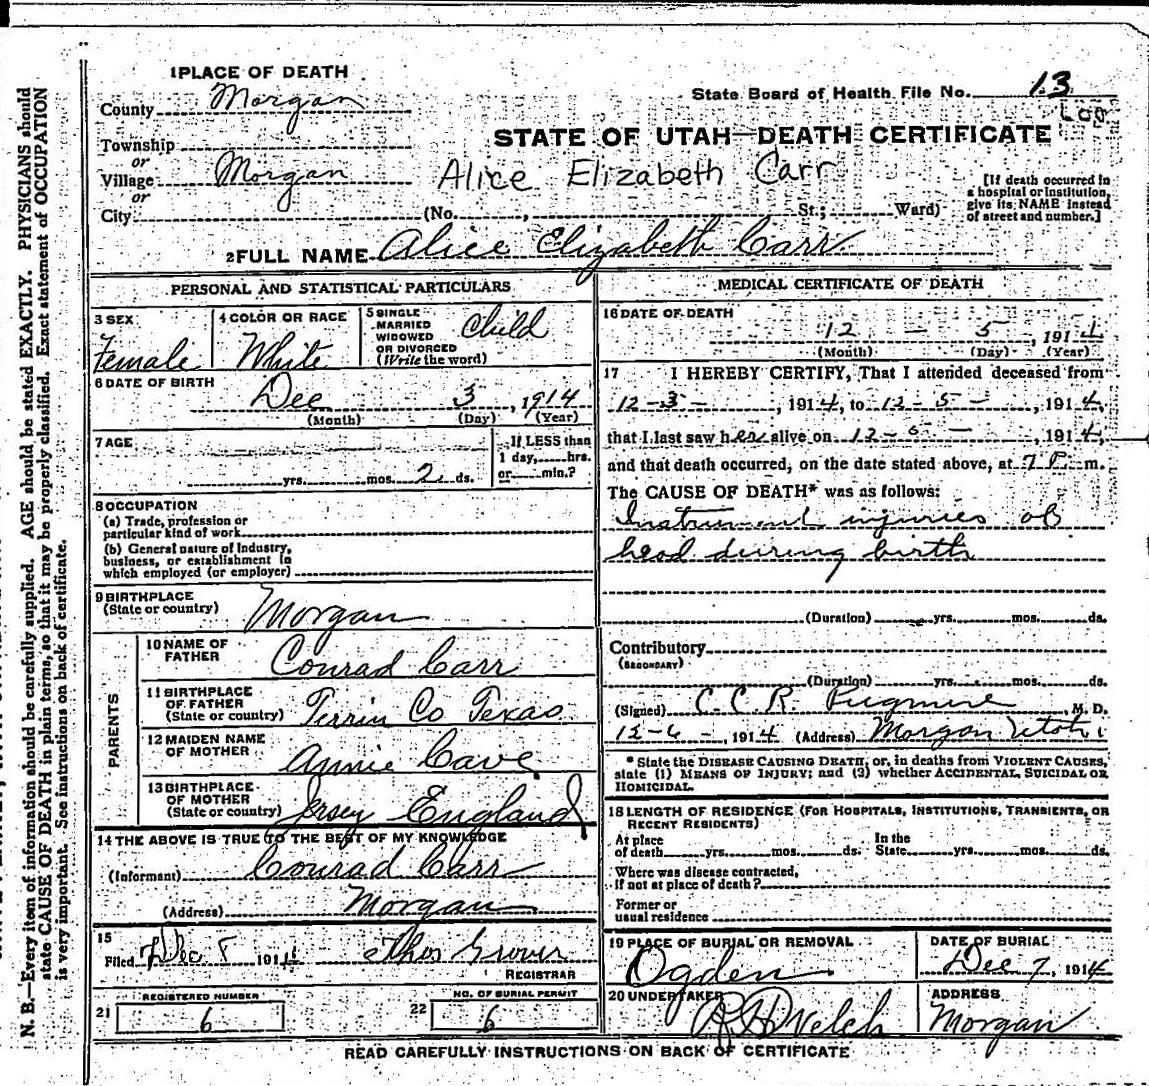 1 PLACE OF DEATH
County Morgan
State Board of Health File No. 13
Township
or
Village Morgan
or
City (No. , St.; Ward)
STATE OF UTAH—DEATH CERTIFICATE
Alice Elizabeth Carr
[If death occurred in
a hospital or institution,
give its NAME instead
of street and number.]
2 FULL NAME Alice Elizabeth Carr
PERSONAL AND STATISTICAL PARTICULARS
3 SEX
Female
4 COLOR OR RACE
White
5 SINGLE
MARRIED
WIDOWED
OR DIVORCED
(Write the word)
Child
6 DATE OF BIRTH
Dec 3, 1914
(Month) (Day) (Year)
7 AGE
yrs. mos. 2 ds.
If LESS than
1 day, hrs.
or min.?
8 OCCUPATION
(a) Trade, profession or
particular kind of work
(b) General nature of Industry,
business, or establishment in
which employed (or employer)
9 BIRTHPLACE
(State or country) Morgan
PARENTS
10 NAME OF
FATHER Conrad Carr
11 BIRTHPLACE
OF FATHER
(State or country) Co Texas
12 MAIDEN NAME
OF MOTHER Annie Cave
13 BIRTHPLACE
OF MOTHER
(State or country) Jersey England
14 THE ABOVE IS TRUE TO THE BEST OF MY KNOWLEDGE
(Informant) Conrad Carr
(Address) Morgan
15
Filed Dec 8 1914 Thos Grover
REGISTRAR
21 REGISTERED NUMBER
6
22 NO. OF BURIAL PERMIT
6
MEDICAL CERTIFICATE OF DEATH
16 DATE OF DEATH
12 - 5, 1914
(Month) (Day) (Year)
17 I HEREBY CERTIFY, That I attended deceased from
12-3-, 1914, to 12-5-, 1914,
that I last saw her alive on 12-5-, 1914,
and that death occurred, on the date stated above, at 7 P. m.
The CAUSE OF DEATH* was as follows:
Instrument injuries of
head during birth
(Duration) yrs. mos. ds.
Contributory
(SECONDARY)
(Duration) yrs. mos. ds.
(Signed) C. C. R. Pugmire, M. D.
12-6-, 1914 (Address) Morgan Utah
* State the DISEASE CAUSING DEATH, or, in deaths from VIOLENT CAUSES,
state (1) MEANS OF INJURY; and (2) whether ACCIDENTAL, SUICIDAL OR
HOMICIDAL.
18 LENGTH OF RESIDENCE (FOR HOSPITALS, INSTITUTIONS, TRANSIENTS, OR
RECENT RESIDENTS)
At place
of death yrs. mos. ds.
In the
State yrs. mos. ds.
Where was disease contracted,
if not at place of death?
Former or
usual residence
19 PLACE OF BURIAL OR REMOVAL
Ogden
DATE OF BURIAL
Dec 7, 1914
20 UNDERTAKER
Welch
ADDRESS
Morgan
READ CAREFULLY INSTRUCTIONS ON BACK OF CERTIFICATE
N. B.—Every item of information should be carefully supplied. AGE should be stated EXACTLY. PHYSICIANS should
state CAUSE OF DEATH in plain terms, so that it may be properly classified. Exact statement of OCCUPATION
is very important. See instructions on back of certificate.